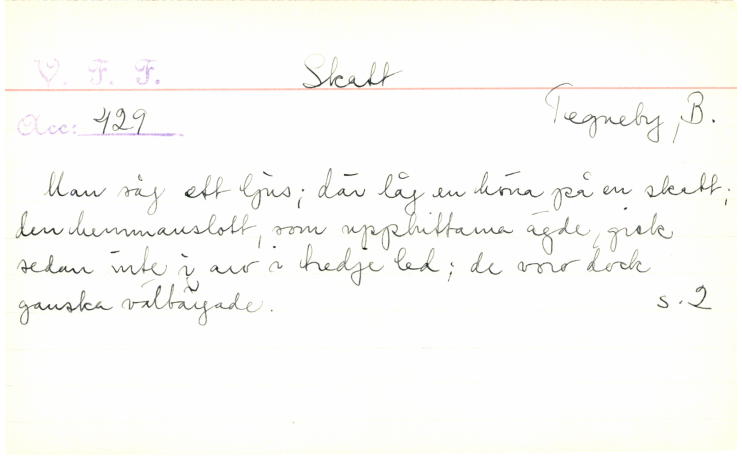 V. F. F.
Skatt
Acc: 429
Tegneby, B.
Man såg ett ljus; där låg en höna på en skatt;
den hemmanslott, som upphittarna ägde, gick
sedan inte i arv i tredje led; de voro dock
ganska välbärgade.
s. 2